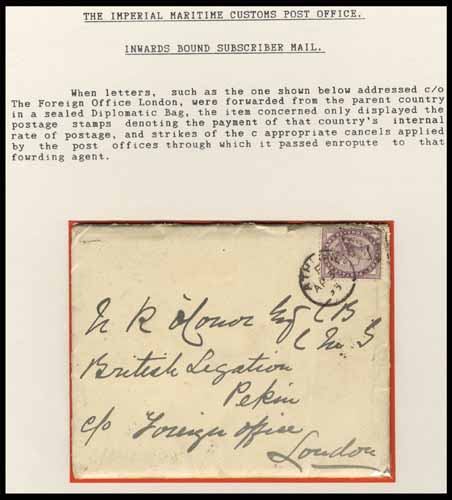 THE IMPERIAL MARITIME CUSTOMS POST OFFICE.
INWARDS BOUND SUBSCRIBER MAIL.
When letters, such as the one shown below addressed c/o
The Foreign Office London, were forwarded from the parent country
in a sealed Diplomatic Bag, the item concerned only displayed the
postage stamps denoting the payment of that country's internal
rate of postage, and strikes of the c appropriate cancels applied
by the post offices through which it passed enropute to that
fowrding agent.
N R O'Conor Esq C B
C M G
British Legation
Pekin
c/o Foreign office
London